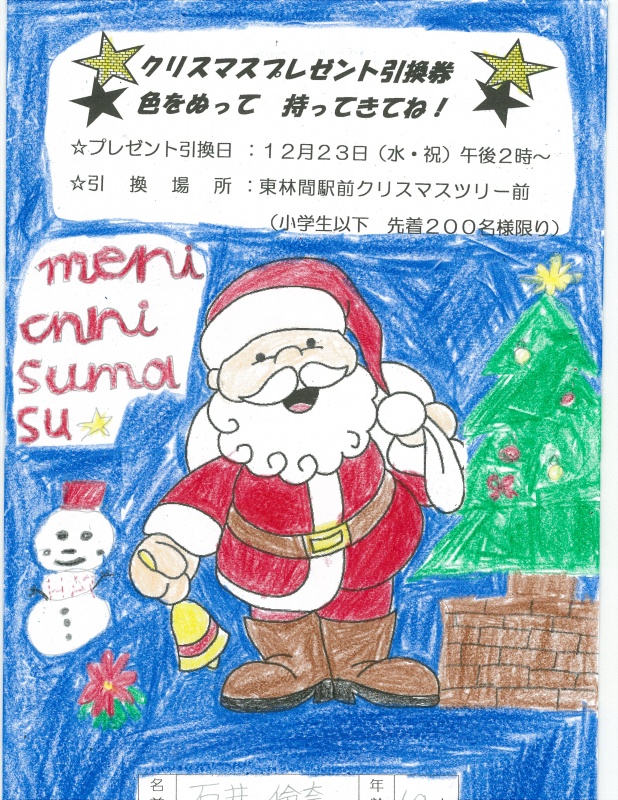 クリスマスプレゼント引換券
色をぬって 持ってきてね！
☆プレゼント引換日：１２月２３日（水・祝）午後２時～
☆引換場所：東林間駅前クリスマスツリー前
（小学生以下 先着２００名様限り）
meri
curi
suma
su
名前 石井 倫奈 年齢